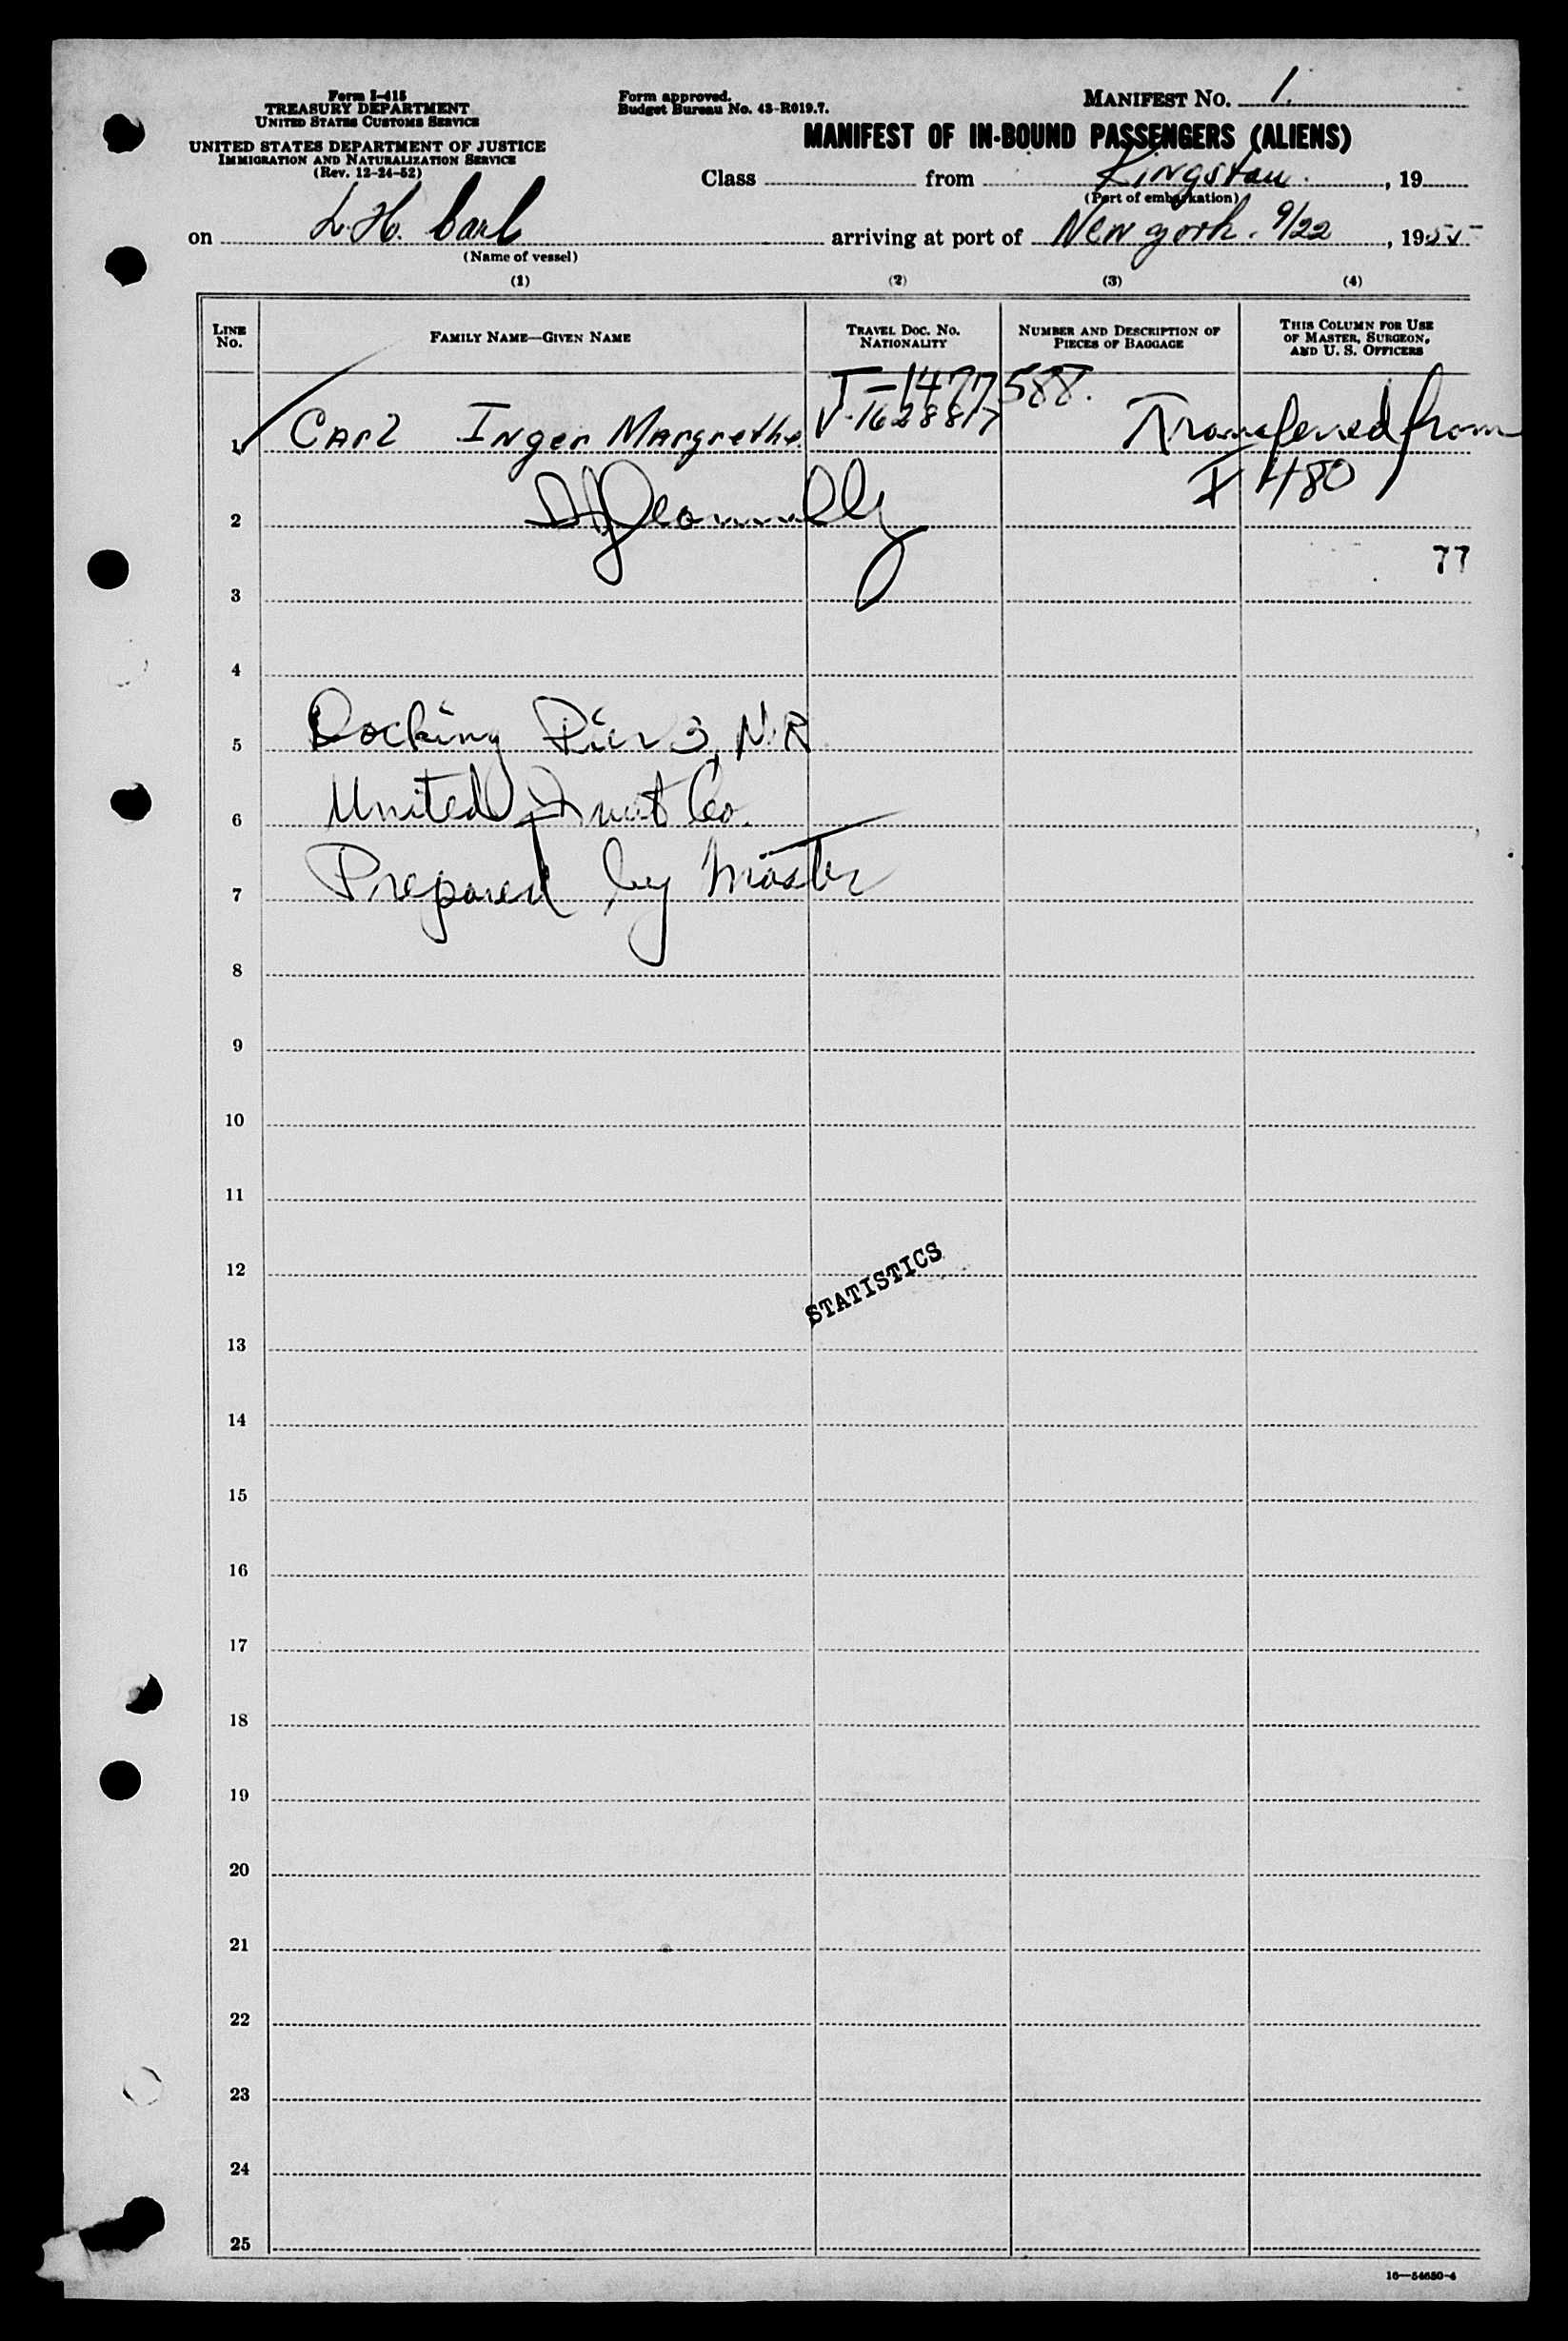 Form I-418
TREASURY DEPARTMENT
UNITED STATES CUSTOMS SERVICE
UNITED STATES DEPARTMENT OF JUSTICE
IMMIGRATION AND NATURALIZATION SERVICE
(Rev. 12-24-52)
Form approved.
Budget Bureau No. 43-R019.7.
MANIFEST NO. 1.
MANIFEST OF IN-BOUND PASSENGERS (ALIENS)
Class from Kingston. , 19
(Port of embarkation)
on L. H. Carl arriving at port of New york. 9/22, 1955
(Name of vessel)
(1) (2) (3) (4)
LINE NO. FAMILY NAME—GIVEN NAME TRAVEL DOC. NO. NATIONALITY NUMBER AND DESCRIPTION OF PIECES OF BAGGAGE THIS COLUMN FOR USE OF MASTER, SURGEON, AND U. S. OFFICERS
T-1477588.
1 Carl Inger Margrethe V-1628817 Transferred from
I 480
2
77
3
4
5 Docking Pier 3, N.R.
6 United Fruit Co.
7 Prepared by Master
8
9
10
11
12
STATISTICS
13
14
15
16
17
18
19
20
21
22
23
24
25
16—54650-4